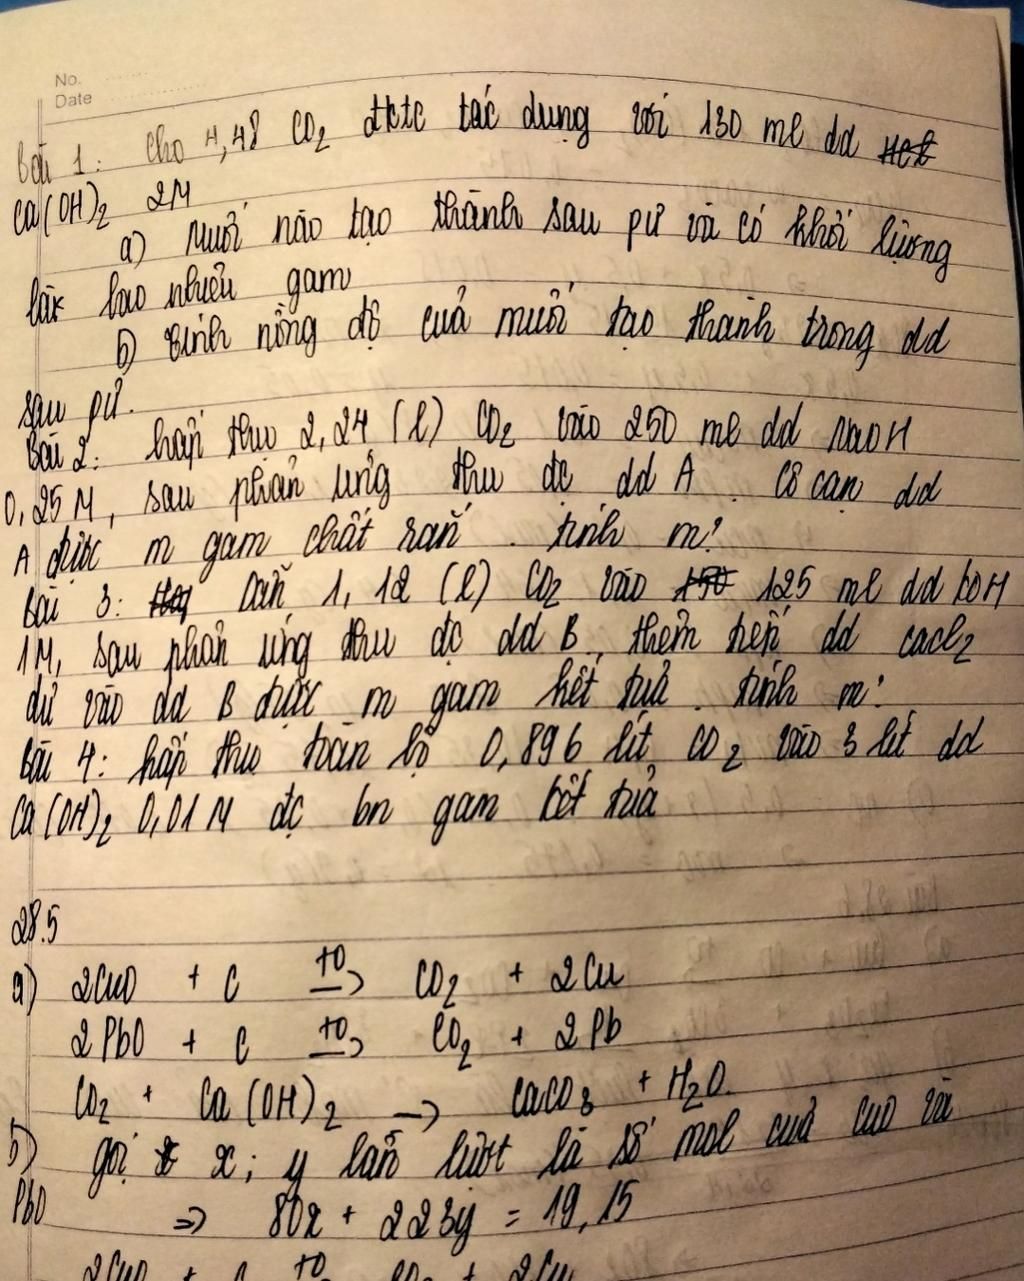 No.
Date
Bài 1: Cho 4,48 CO2 đktc tác dụng với 130 ml dd
Ca(OH)2 2M
a) Muối nào tạo thành sau pư và có khối lượng
là bao nhiêu gam
b) tính nồng độ của muối tạo thành trong dd
sau pư.
Bài 2: hấp thụ 2,24 (l) CO2 vào 250 ml dd NaOH
0,25M, sau phản ứng thu đc dd A. Cô cạn dd
A được m gam chất rắn. tính m?
Bài 3: Dẫn 1,12 (l) CO2 vào 125 ml dd KOH
1M, sau phản ứng thu đc dd B, thêm tiếp dd CaCl2
dư vào dd B được m gam kết tủa. tính m?
Bài 4: hấp thụ toàn bộ 0,896 lít CO2 vào 3 lít dd
Ca(OH)2 0,01M đc bn gam kết tủa
28.5
a) 2CuO + C to→ CO2 + 2Cu
2PbO + C to→ CO2 + 2Pb
CO2 + Ca(OH)2 → CaCO3 + H2O.
b) gọi x; y lần lượt là số mol của CuO và
PbO ⇒ 80x + 223y = 19,15
2CuO + C to CO2 + 2Cu